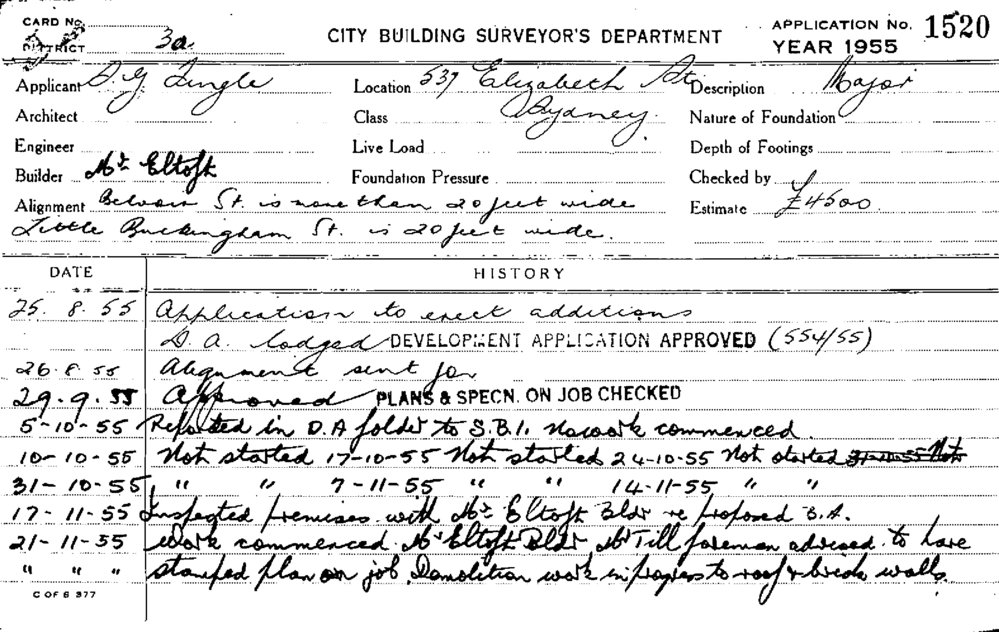 CARD No.
DISTRICT 3a.
CITY BUILDING SURVEYOR'S DEPARTMENT
APPLICATION No. 1520
YEAR 1955
Applicant D. G. Tingle Location 537 Elizabeth St Description Major
Architect Class Sydney. Nature of Foundation
Engineer Live Load Depth of Footings
Builder Mr Eltoft Foundation Pressure Checked by
Alignment Belvoir St. is more than 20 feet wide Estimate £4500
Little Buckingham St. is 20 feet wide.
DATE HISTORY
25. 8. 55 Application to erect additions
D. A. lodged DEVELOPMENT APPLICATION APPROVED (554/55)
26. 8. 55 Alignment sent for
29. 9. 55 Approved PLANS & SPECN. ON JOB CHECKED
5-10-55 Reported in D.A folder to S.B.I. No work commenced.
10-10-55 Not started 17-10-55 Not started 24-10-55 Not started 31-10-55 Not
31-10-55 " " 7-11-55 " " 14-11-55 " "
17-11-55 Inspected premises with Mr Eltoft Bldr re proposed B.A.
21-11-55 Work commenced. Mr Eltoft Bldr Mr Till foreman advised to have
" " " stamped plan on job. Demolition work in progress to roof & brick walls.
C OF S 377